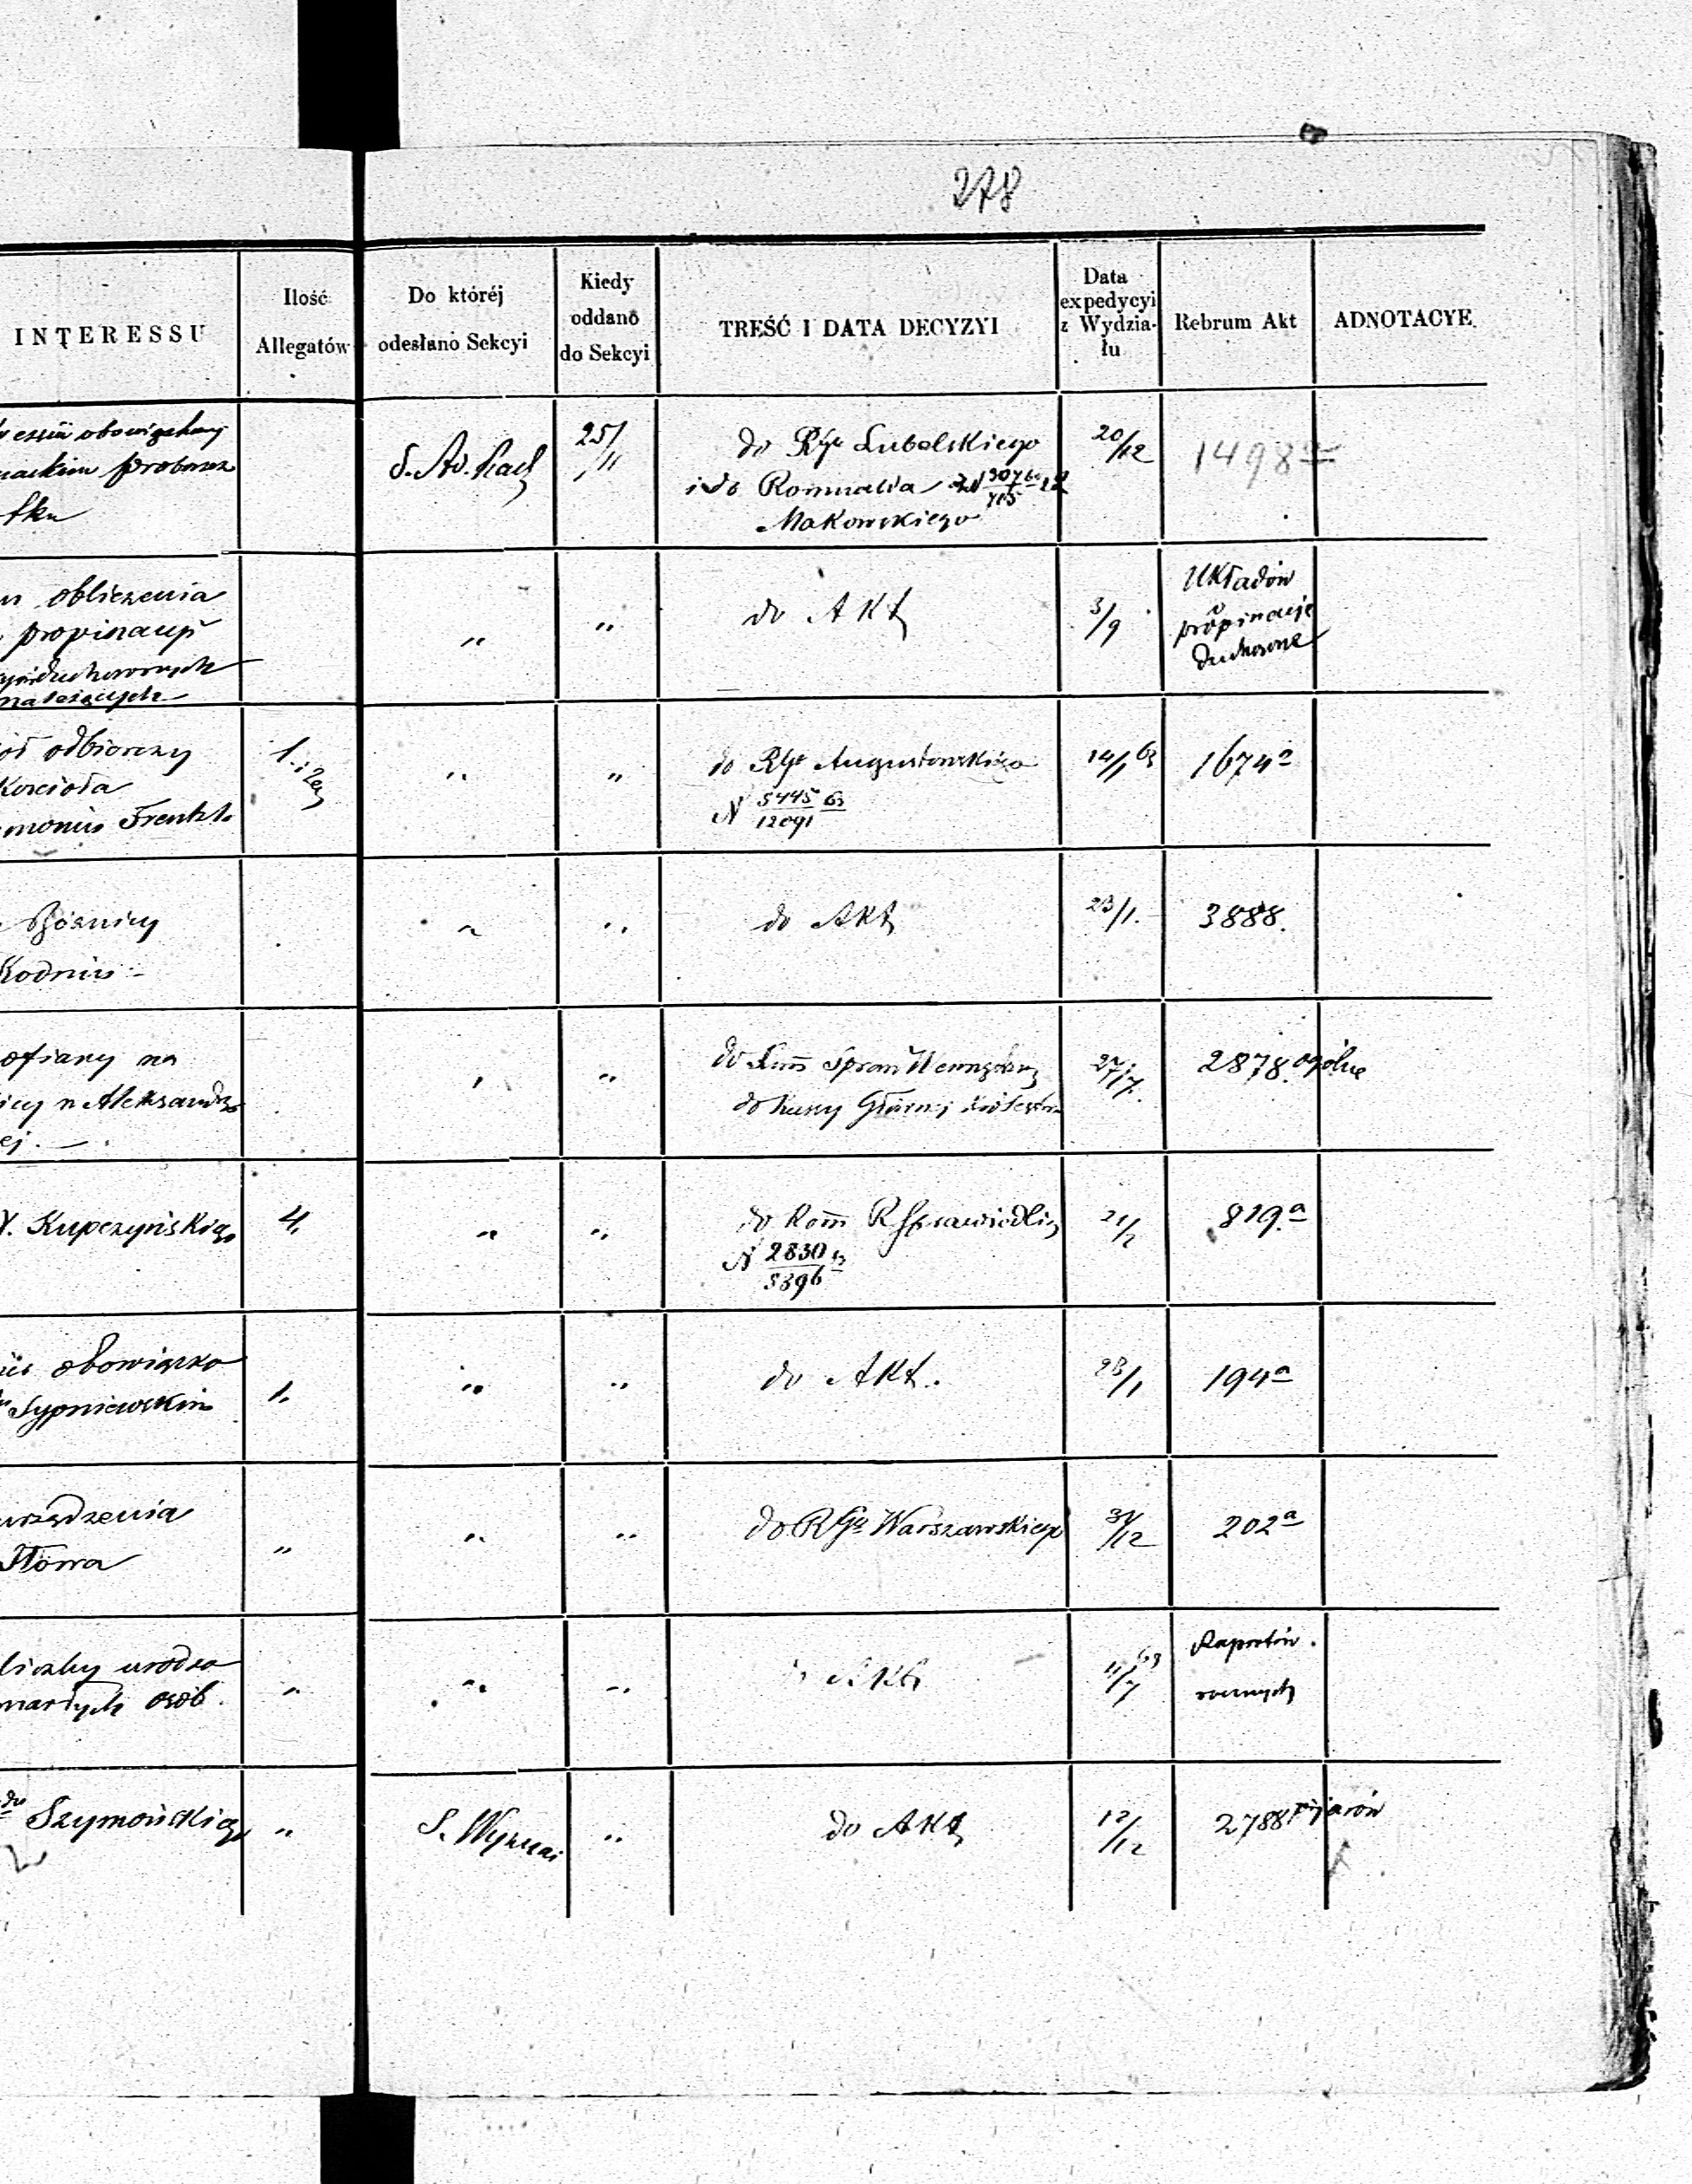 278
INTERESSU
Ilość
Allegatów
Do któréj
odesłano Sekcyi
Kiedy
oddano
do Sekcyi
TREŚĆ I DATA DECYZYI
Data
expedycyi
z Wydzia-
łu
Rebrum Akt
ADNOTACYE
S. Ad. Rach
25/11
do RGu Lubelskiego
i do Romualda
Makowskiego
20/12
1498a
obliczenia
propinacyi
duchownych
należących
„
„
do Akt
3/9
Układów
propinacyje
duchowne
odbiorczy
Kościoła
1.
„
„
do RGu Augustowskiego
N 5445/12091 63
14/1 63
1674a
Bóżnicy
Kodniu
„
„
do Akt
23/1.
3888.
ofiary na
w Aleksandro
ej.
„
„
do Kom Spraw Wewnętrz
do Kassy Głównej
27/7.
2878. ogólne
Kupczyńskiego
4.
„
„
do Kom R Sprawiedliw
N 2830/5396 63
21/2
819.a
obowiązko
Sypniewskim
1.
„
„
do Akt.
23/1
194a
urządzenia
Iłowa
„
„
„
do RGu Warszawskiego
31/12
202a
liczby urodzo
marłych osób.
„
„
„
do Akt
4/7 63
Raportów
rocznych
Szymońskiego
„
S. Wyznai
„
do Akt
12/12
2788 Pijarów